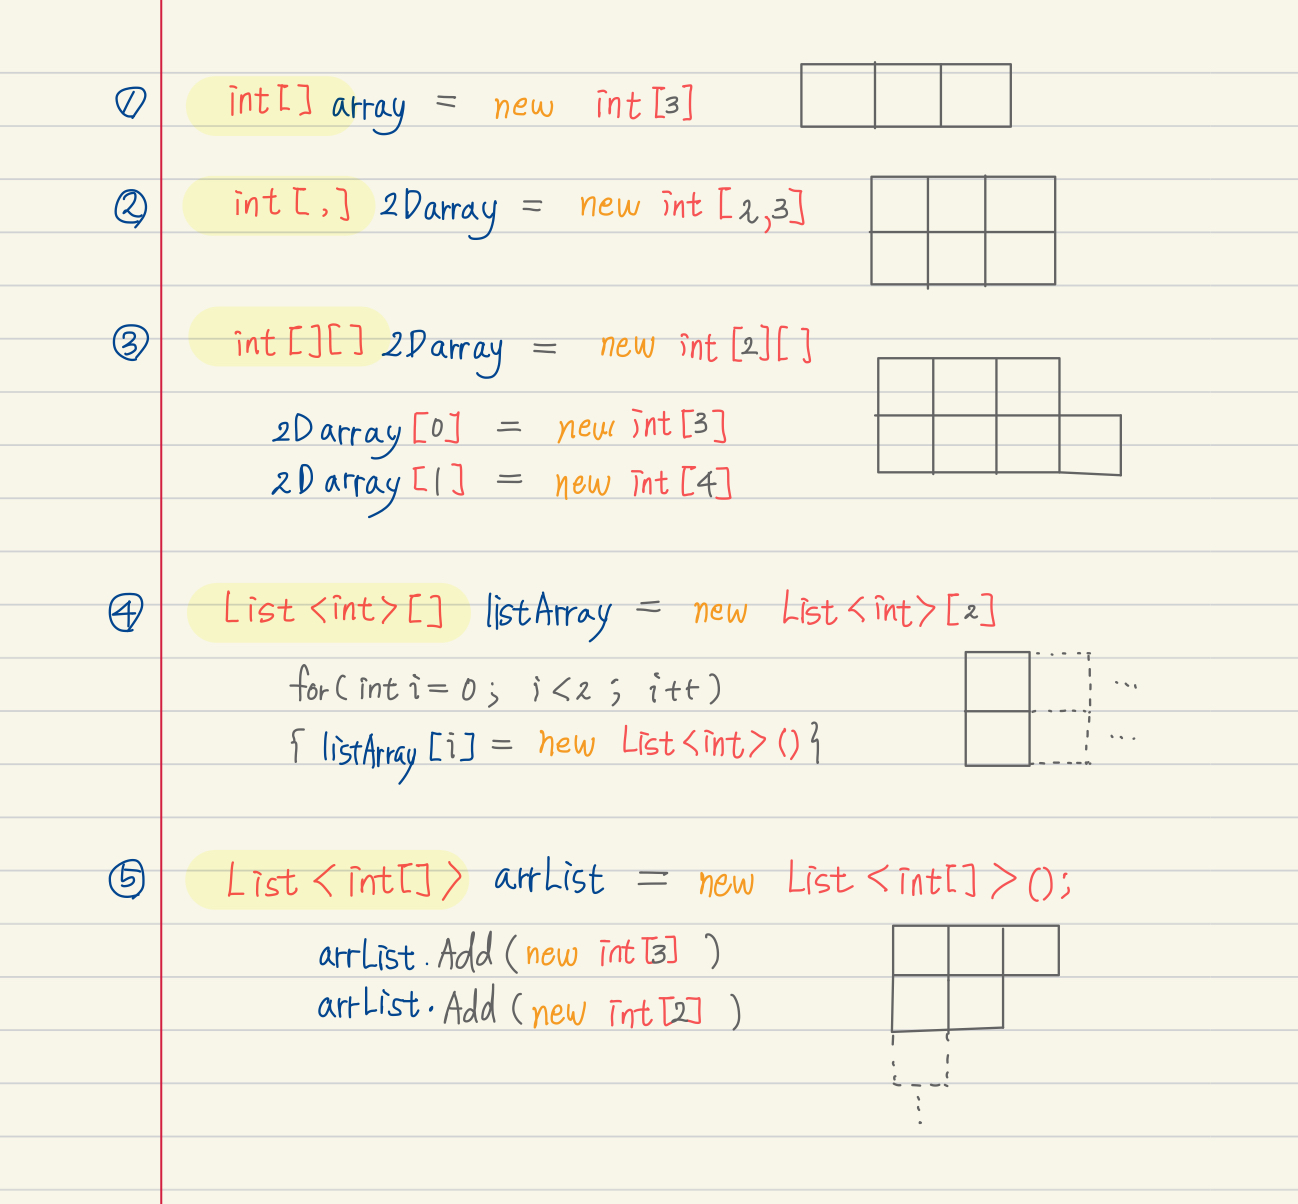 ① int[] array = new int[3]
② int[,] 2Darray = new int[2,3]
③ int[][] 2Darray = new int[2][]
2Darray[0] = new int[3]
2Darray[1] = new int[4]
④ List<int>[] listArray = new List<int>[2]
for(int i=0; i<2; i++)
{ listArray[i] = new List<int>()}
⑤ List<int[]> arrList = new List<int[]>();
arrList.Add(new int[3])
arrList.Add(new int[2])